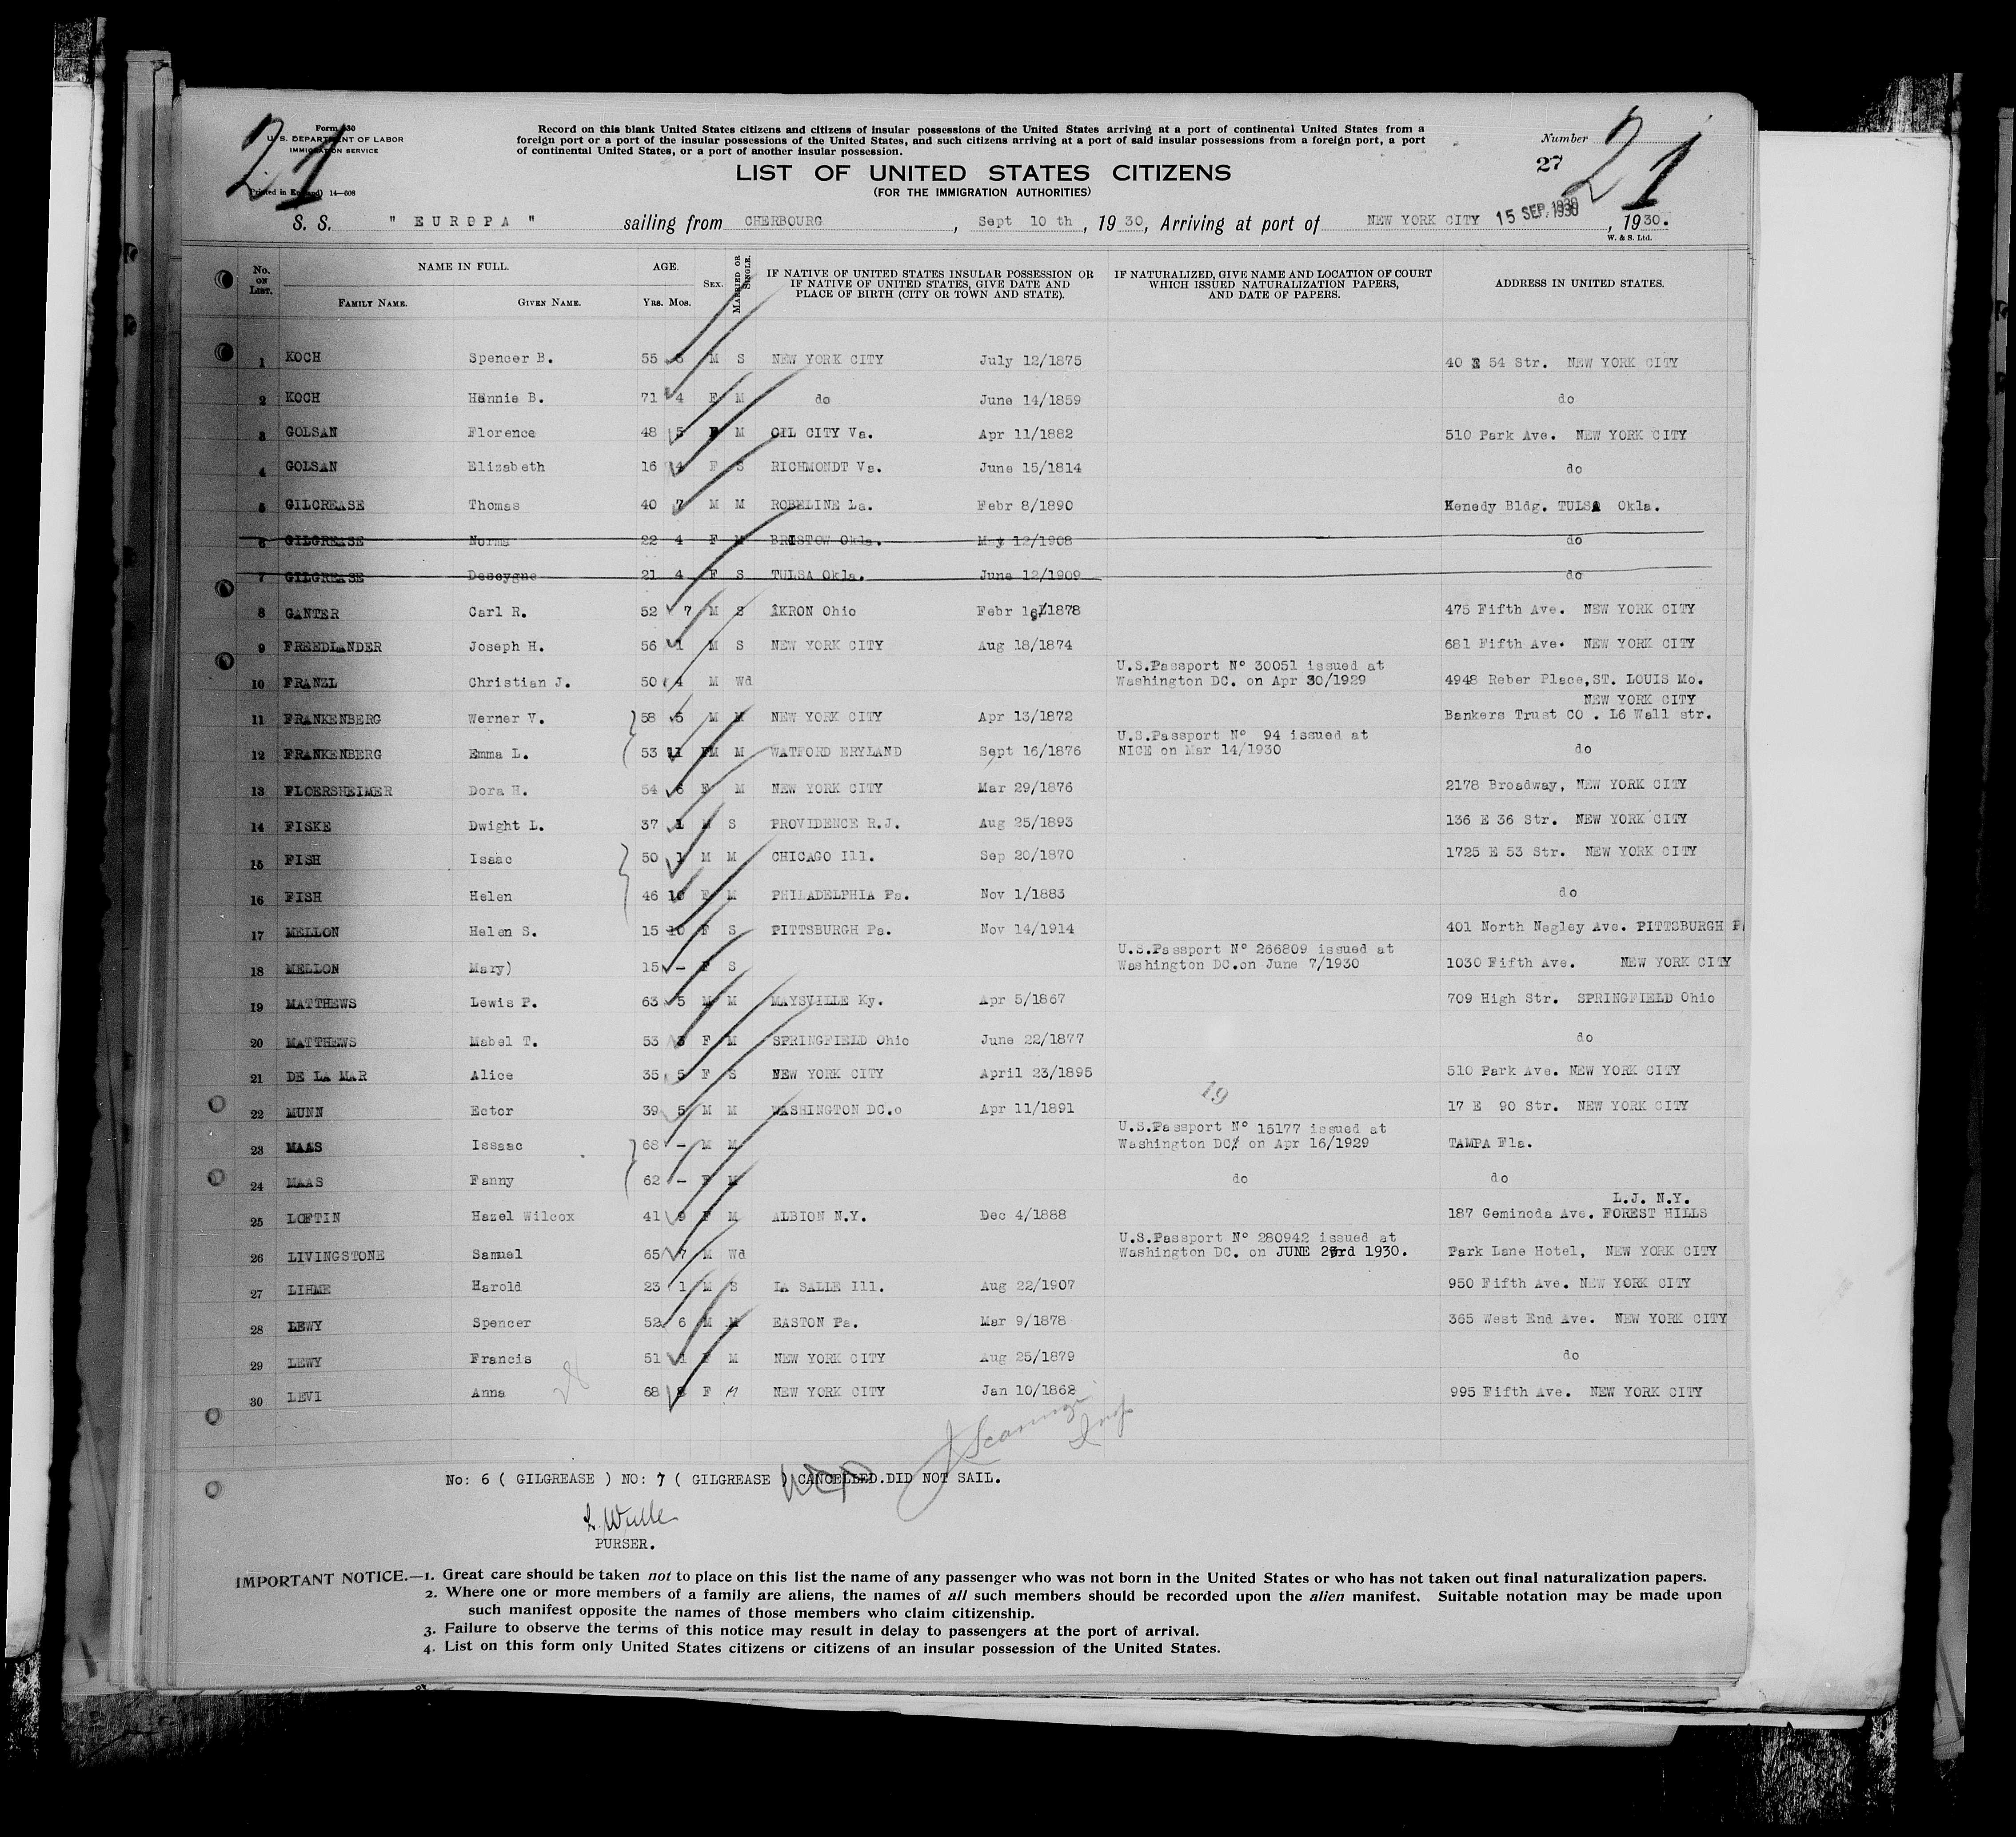 21
Form 430
U. S. DEPARTMENT OF LABOR
IMMIGRATION SERVICE
(Printed in England) 14—608
Record on this blank United States citizens and citizens of insular possessions of the United States arriving at a port of continental United States from a
foreign port or a port of the insular possessions of the United States, and such citizens arriving at a port of said insular possessions from a foreign port, a port
of continental United States, or a port of another insular possession.
LIST OF UNITED STATES CITIZENS
(FOR THE IMMIGRATION AUTHORITIES)
Number
27
21
S. S. " EUROPA " sailing from CHERBOURG, Sept 10 th, 1930, Arriving at port of NEW YORK CITY 15 SEP. 1930, 1930.
W. & S. Ltd.
No. ON LIST. NAME IN FULL. AGE. SEX. MARRIED OR SINGLE. IF NATIVE OF UNITED STATES INSULAR POSSESSION OR IF NATIVE OF UNITED STATES, GIVE DATE AND PLACE OF BIRTH (CITY OR TOWN AND STATE). IF NATURALIZED, GIVE NAME AND LOCATION OF COURT WHICH ISSUED NATURALIZATION PAPERS, AND DATE OF PAPERS. ADDRESS IN UNITED STATES.
FAMILY NAME. GIVEN NAME. Yrs. Mos.
1 KOCH Spencer B. 55 M S NEW YORK CITY July 12/1875 40 E 54 Str. NEW YORK CITY
2 KOCH Hannie B. 71 4 F M do June 14/1859 do
3 GOLSAN Florence 48 5 F M OIL CITY Va. Apr 11/1882 510 Park Ave. NEW YORK CITY
4 GOLSAN Elizabeth 16 4 F S RICHMONDT Va. June 15/1814 do
5 GILCREASE Thomas 40 7 M M ROBELINE La. Febr 8/1890 Kenedy Bldg. TULSA Okla.
6 GILGREASE Norma 22 4 F M BRISTOW Okla. May 12/1908 do
7 GILGREASE Descygne 21 4 F S TULSA Okla. June 12/1909 do
8 GANTER Carl R. 52 7 M S AKRON Ohio Febr 16/1878 475 Fifth Ave. NEW YORK CITY
9 FREEDLANDER Joseph H. 56 1 M S NEW YORK CITY Aug 18/1874 681 Fifth Ave. NEW YORK CITY
10 FRANZL Christian J. 50 4 M Wd U.S.Passport No 30051 issued at Washington DC. on Apr 30/1929 4948 Reber Place,ST. LOUIS Mo.
11 FRANKENBERG Werner V. 58 5 M M NEW YORK CITY Apr 13/1872 NEW YORK CITY Bankers Trust CO . 16 Wall str.
12 FRANKENBERG Emma L. 53 11 FM M WATFORD ERYLAND Sept 16/1876 U.S.Passport No 94 issued at NICE on Mar 14/1930 do
13 FLOERSHEIMER Dora H. 54 6 F M NEW YORK CITY Mar 29/1876 2178 Broadway, NEW YORK CITY
14 FISKE Dwight L. 37 1 M S PROVIDENCE R.J. Aug 25/1893 136 E 36 Str. NEW YORK CITY
15 FISH Isaac 50 1 M M CHICAGO Ill. Sep 20/1870 1725 E 53 Str. NEW YORK CITY
16 FISH Helen 46 10 F M PHILADELPHIA Pa. Nov 1/1883 do
17 MELLON Helen S. 15 10 F S PITTSBURGH Pa. Nov 14/1914 401 North Negley Ave. PITTSBURGH P
18 MELLON Mary) 15 — F S U.S.Passport No 266809 issued at Washington DC.on June 7/1930 1030 Fifth Ave. NEW YORK CITY
19 MATTHEWS Lewis P. 63 5 M M MAYSVILLE Ky. Apr 5/1867 709 High Str. SPRINGFIELD Ohio
20 MATTHEWS Mabel T. 53 3 F M SPRINGFIELD Ohio June 22/1877 do
21 DE LA MAR Alice 35 5 F S NEW YORK CITY April 23/1895 510 Park Ave. NEW YORK CITY
19
22 MUNN Ector 39 5 M M WASHINGTON DC.o Apr 11/1891 17 E 90 Str. NEW YORK CITY
23 MAAS Issaac 68 — M M U.S.Passport No 15177 issued at Washington DC. on Apr 16/1929 TAMPA Fla.
24 MAAS Fanny 62 — F M do do
25 LOFTIN Hazel Wilcox 41 9 F M ALBION N.Y. Dec 4/1888 L.J. N.Y. 187 Geminoda Ave. FOREST HILLS
26 LIVINGSTONE Samuel 65 7 M Wd U.S.Passport No 280942 issued at Washington DC. on JUNE 23rd 1930. Park Lane Hotel, NEW YORK CITY
27 LIHME Harold 23 1 M S LA SALLE Ill. Aug 22/1907 950 Fifth Ave. NEW YORK CITY
28 LEWY Spencer 52 6 M M EASTON Pa. Mar 9/1878 365 West End Ave. NEW YORK CITY
29 LEWY Francis 51 1 F M NEW YORK CITY Aug 25/1879 do
28
30 LEVI Anna 68 8 F M NEW YORK CITY Jan 10/1862 995 Fifth Ave. NEW YORK CITY
No: 6 ( GILGREASE ) NO: 7 ( GILGREASE ) CANCELLED.DID NOT SAIL.
PURSER.
IMPORTANT NOTICE.—1. Great care should be taken not to place on this list the name of any passenger who was not born in the United States or who has not taken out final naturalization papers.
2. Where one or more members of a family are aliens, the names of all such members should be recorded upon the alien manifest. Suitable notation may be made upon
such manifest opposite the names of those members who claim citizenship.
3. Failure to observe the terms of this notice may result in delay to passengers at the port of arrival.
4. List on this form only United States citizens or citizens of an insular possession of the United States.